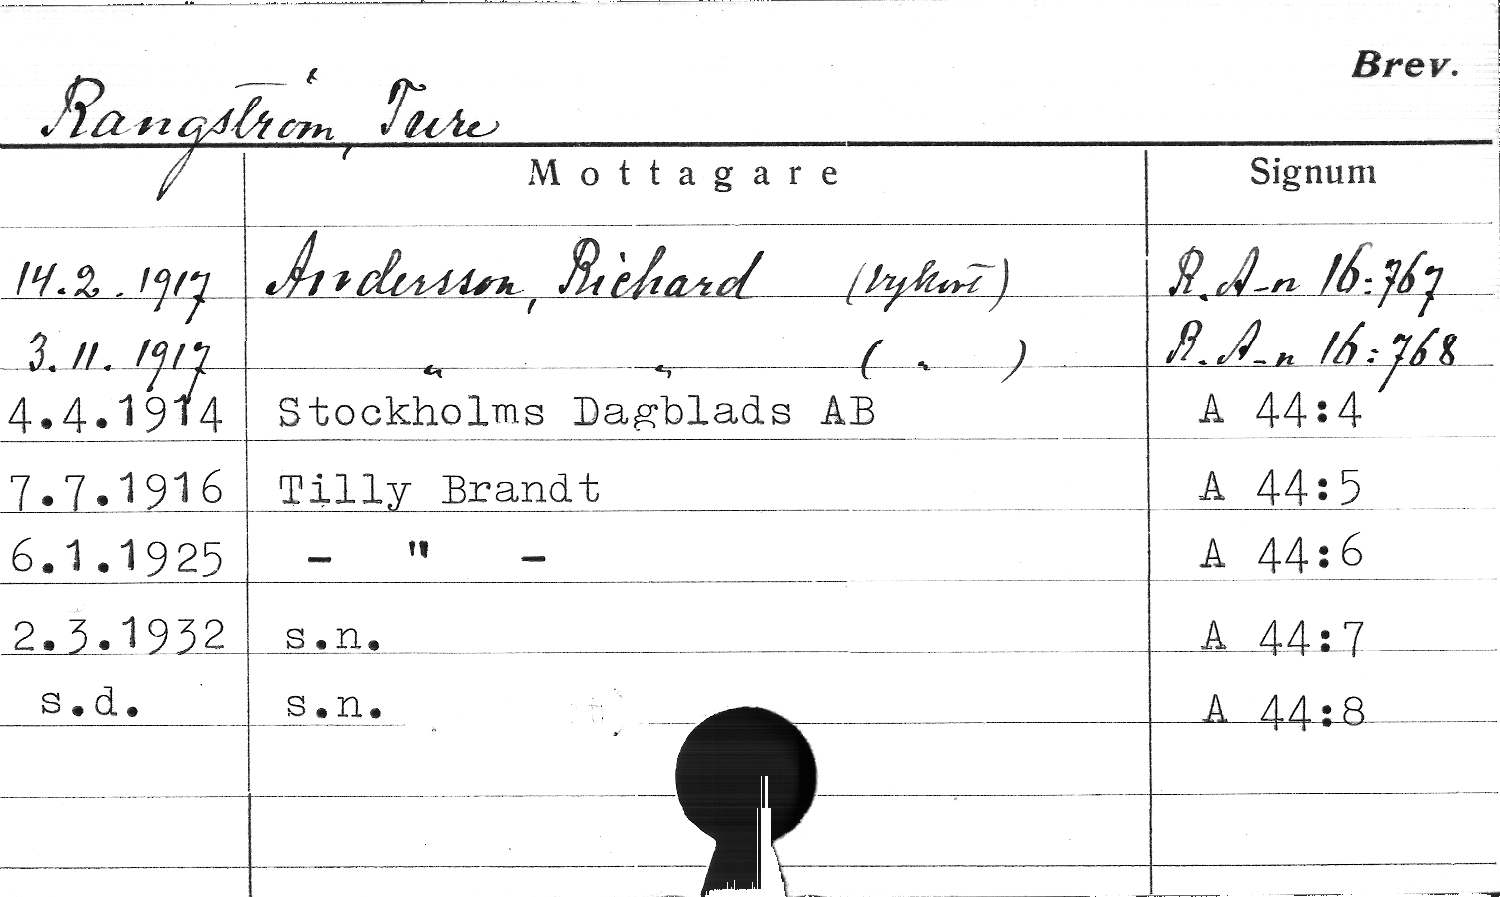 Brev.
Rangström, Ture
Mottagare Signum
14.2.1917 Andersson, Richard (vykort) R. A-n 16:767
3.11.1917 " " ( " ) R. A-n 16:768
4.4.1914 Stockholms Dagblads AB A 44:4
7.7.1916 Tilly Brandt A 44:5
6.1.1925 - " - A 44:6
2.3.1932 s.n. A 44:7
s.d. s.n. A 44:8